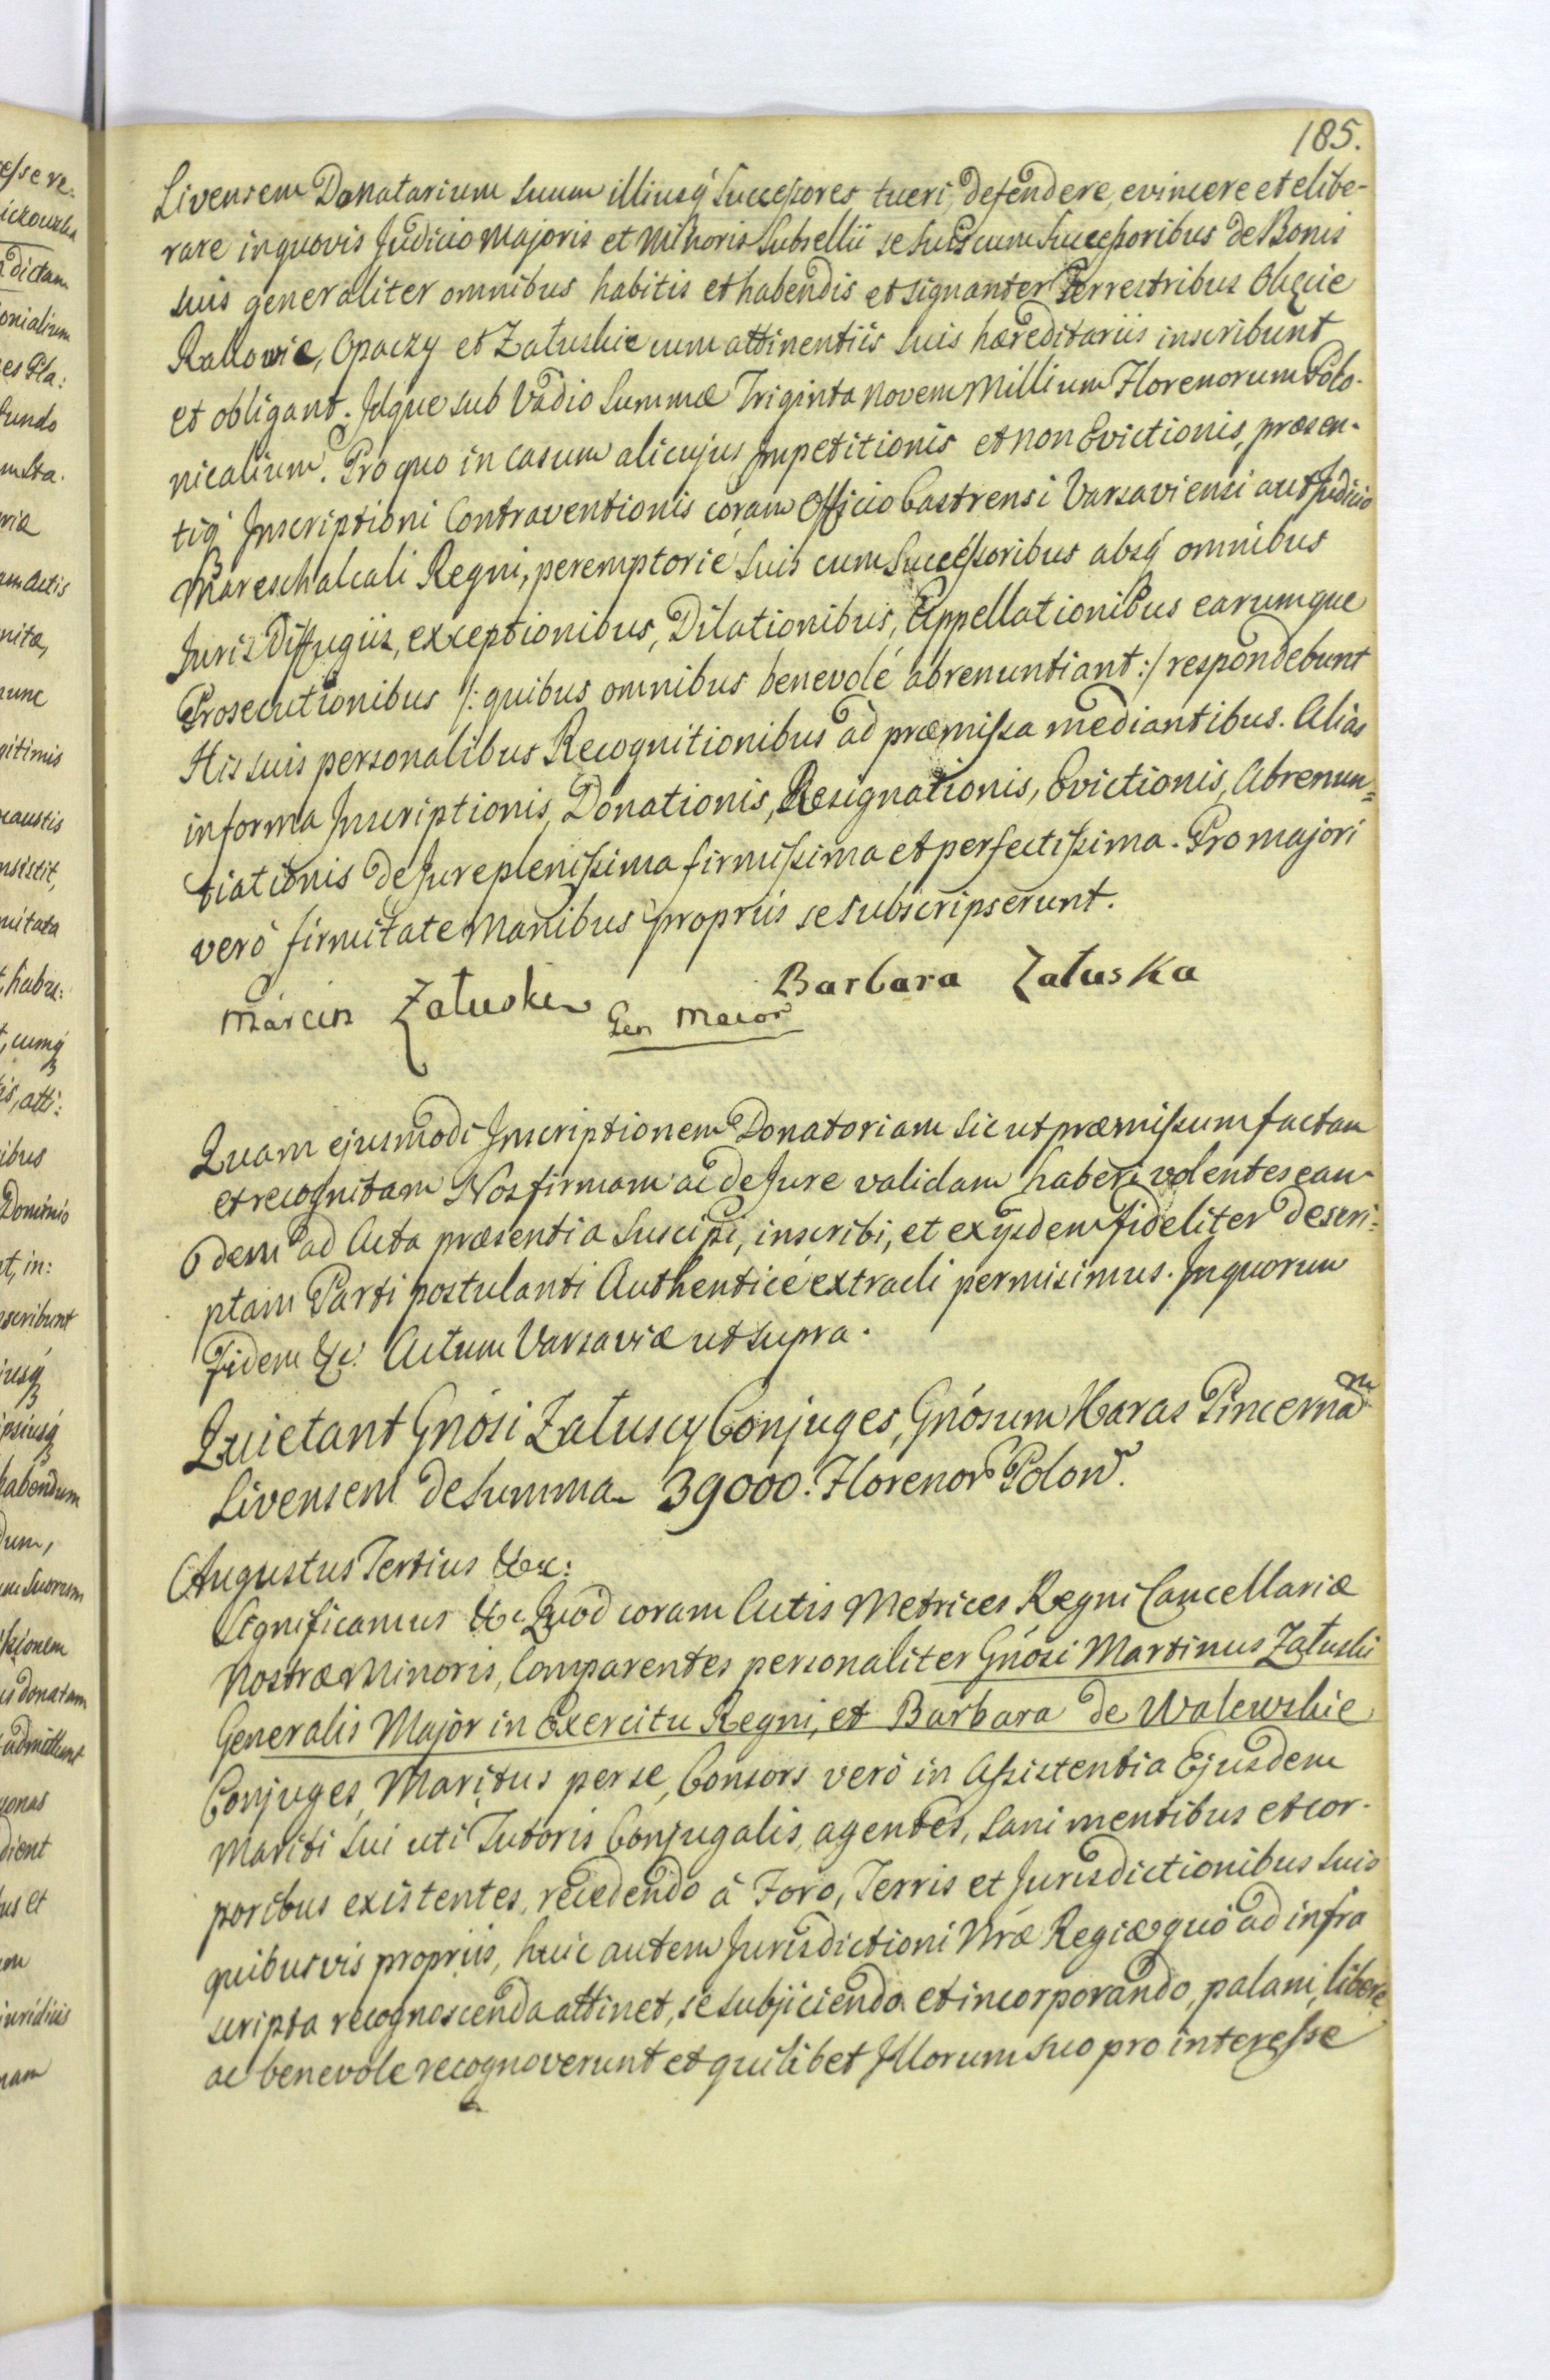 185.
Livensem Donatarium suum illiusq́ Successores tueri, defendere, evincere et elibe-
rare in quovis Judicio Majoris et Minoris Subsellii se suis cum Successoribus de Bonis
suis generaliter omnibus habitis et habendis et signanter Terrestribus Okęcie
Rakowie, Opaczy et Załuskie cum attinentiis suis hæreditariis inscribunt
et obligant. Idque sub Vadio Summæ Triginta Novem Millium Florenorum Polo-
nicalium. Pro quo in casum alicujus Impetitionis et non Evictionis, præsen-
tiq́ Inscriptioni Contraventionis coram Officio Castrensi Varsaviensi aut Judicio
Mareschalcali Regni, peremptorié suis cum Successoribus absq́ omnibus
Juris Diffugiis, exceptionibus, Dilationibus, Appellationibus earumque
Prosecutionibus /: quibus omnibus benevolé abrenuntiant :/ respondebunt
His suis personalibus Recognitionibus ad præmissa mediantibus. Aliàs
in forma Inscriptionis, Donationis, Resignationis, Evictionis, Abrenun=
tiationis de Jure plenissima firmissima et perfectissima. Pro majori
verò firmitate Manibus propriis se subscripserunt.
Marcin Załuski Gen Maior Barbara Załuska
Quam ejusmodi Inscriptionem Donatoriam sic ut præmissum factam
et recognitam Nos firmam ac de Jure validam haberi volentes ean-
dem ad Acta præsentia suscipi, inscribi, et ex ijsdem fideliter descri=
ptam Parti postulanti Authenticé extradi permisimus. In quorum
Fidem &c. Actum Varsaviæ ut supra.
Quietant Gnósi Załuscy Conjuges, Gnósum Haras Pincernam
Livensem de Summa 39000. Florenor Polon.
Augustus Tertius &c:
Significamus &c Quod coram Actis Metrices Regni Cancellariæ
Nostræ Minoris, Comparentes personaliter Gnósi Martinus Załuski
Generalis Major in Exercitu Regni, et Barbara de Walewskie
Conjuges, Maritus per se, Consors verò in Assistentia Ejusdem
Mariti sui uti Tutoris Conjugalis, agentes, sani mentibus et cor-
poribus existentes, recedendo à Foro, Terris et Jurisdictionibus suis
quibusvis propriis, huic autem Jurisdictioni Nræ Regiæ quò ad infra
scripta recognoscenda attinet, se subjiciendo et incorporando, palam, libere,
ac benevole recognoverunt et quilibet Illorum suo pro interesse